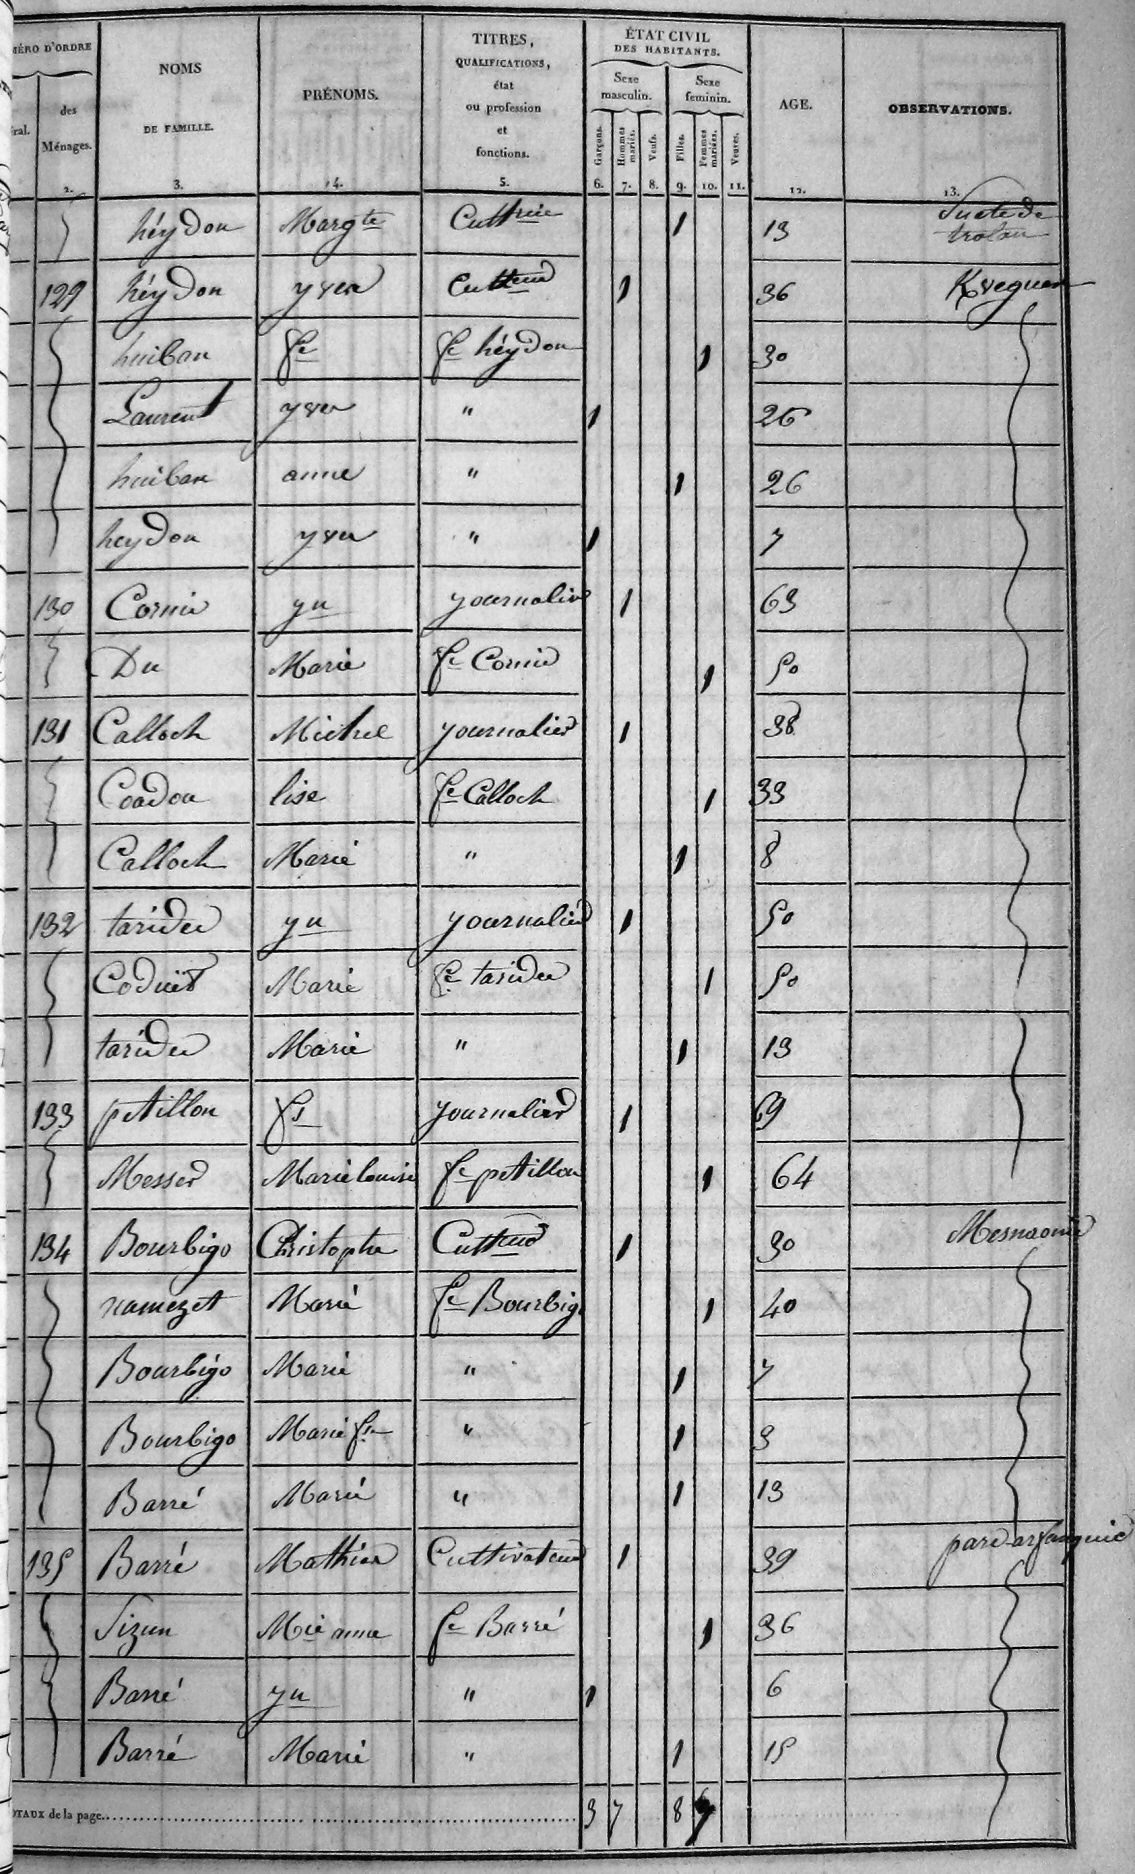 MÉRO D'ORDRE
ral.
des Ménages.
2.
NOMS
DE FAMILLE.
3.
PRÉNOMS.
4.
TITRES,
QUALIFICATIONS,
état
ou profession
et
fonctions.
5.
ÉTAT CIVIL
DES HABITANTS.
Sexe masculin.
Sexe feminin.
Garçons.
Hommes mariés.
Veufs.
Filles.
Femmes mariées.
Veuves.
6. 7. 8. 9. 10. 11.
AGE.
12.
OBSERVATIONS.
13.
héydon Margte Cultrice 1 13 Suite de
129 héydon yves Culteur 1 36 Kveguen
huiban fe fe héydon 1 30
Laurent yves " 1 26
huiban anne " 1 26
heydon yves " 1 7
130 Cornic yn yournalier 1 63
Du Marie fe Cornic 1 50
131 Calloch Michel yournalier 1 38
Coadou lise fe Calloch 1 33
Calloch Marie " 1 8
132 taridec yn yournalier 1 50
Coduit Marie fe taridec 1 50
taridec Marie " 1 13
133 petillon fs yournalier 1 69
Messer Marie louise fe petillon 1 64
134 Bourbigo Christophe Culteur 1 30
namezet Marie fe Bourbigo 1 40
Bourbigo Marie " 1 7
Bourbigo Marie fse " 1 3
Barré Marie " 1 13
135 Barré Mathieu Cultivateur 1 39
Sizun Mie anne fe Barré 1 36
Barré yn " 1 6
Barré Marie " 1 15
OTAUX de la page 3 7 8 7